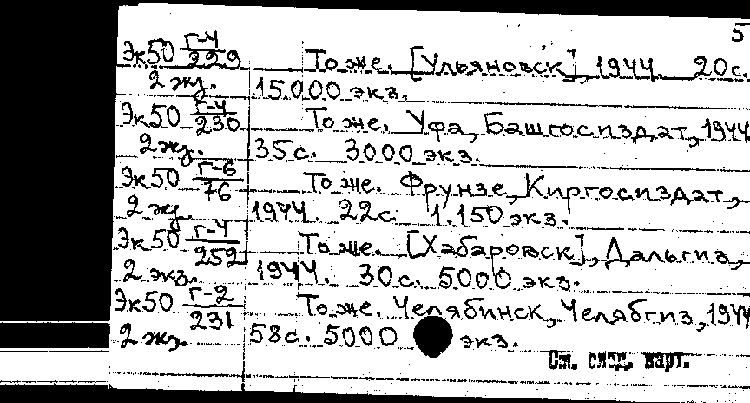 5
Эк50 Г-4/229 То же. [Ульяновск], 1944 20с.
2 экз. 15.000 экз.
Эк50 Г-4/230 То же. Уфа, Башгосиздат, 1944
2 экз. 35с. 3000 экз.
Эк50 Г-6/76 То же. Фрунзе, Киргосиздат,
2 экз. 1944. 22с. 1.150 экз.
Эк50 Г-4/252 То же. [Хабаровск], Дальгиз,
2 экз. 1944. 30с. 5000 экз.
Эк50 Г-2/231 То же. Челябинск, Челябгиз, 1944
2 экз. 58с. 5000 экз.
См. след. карт.